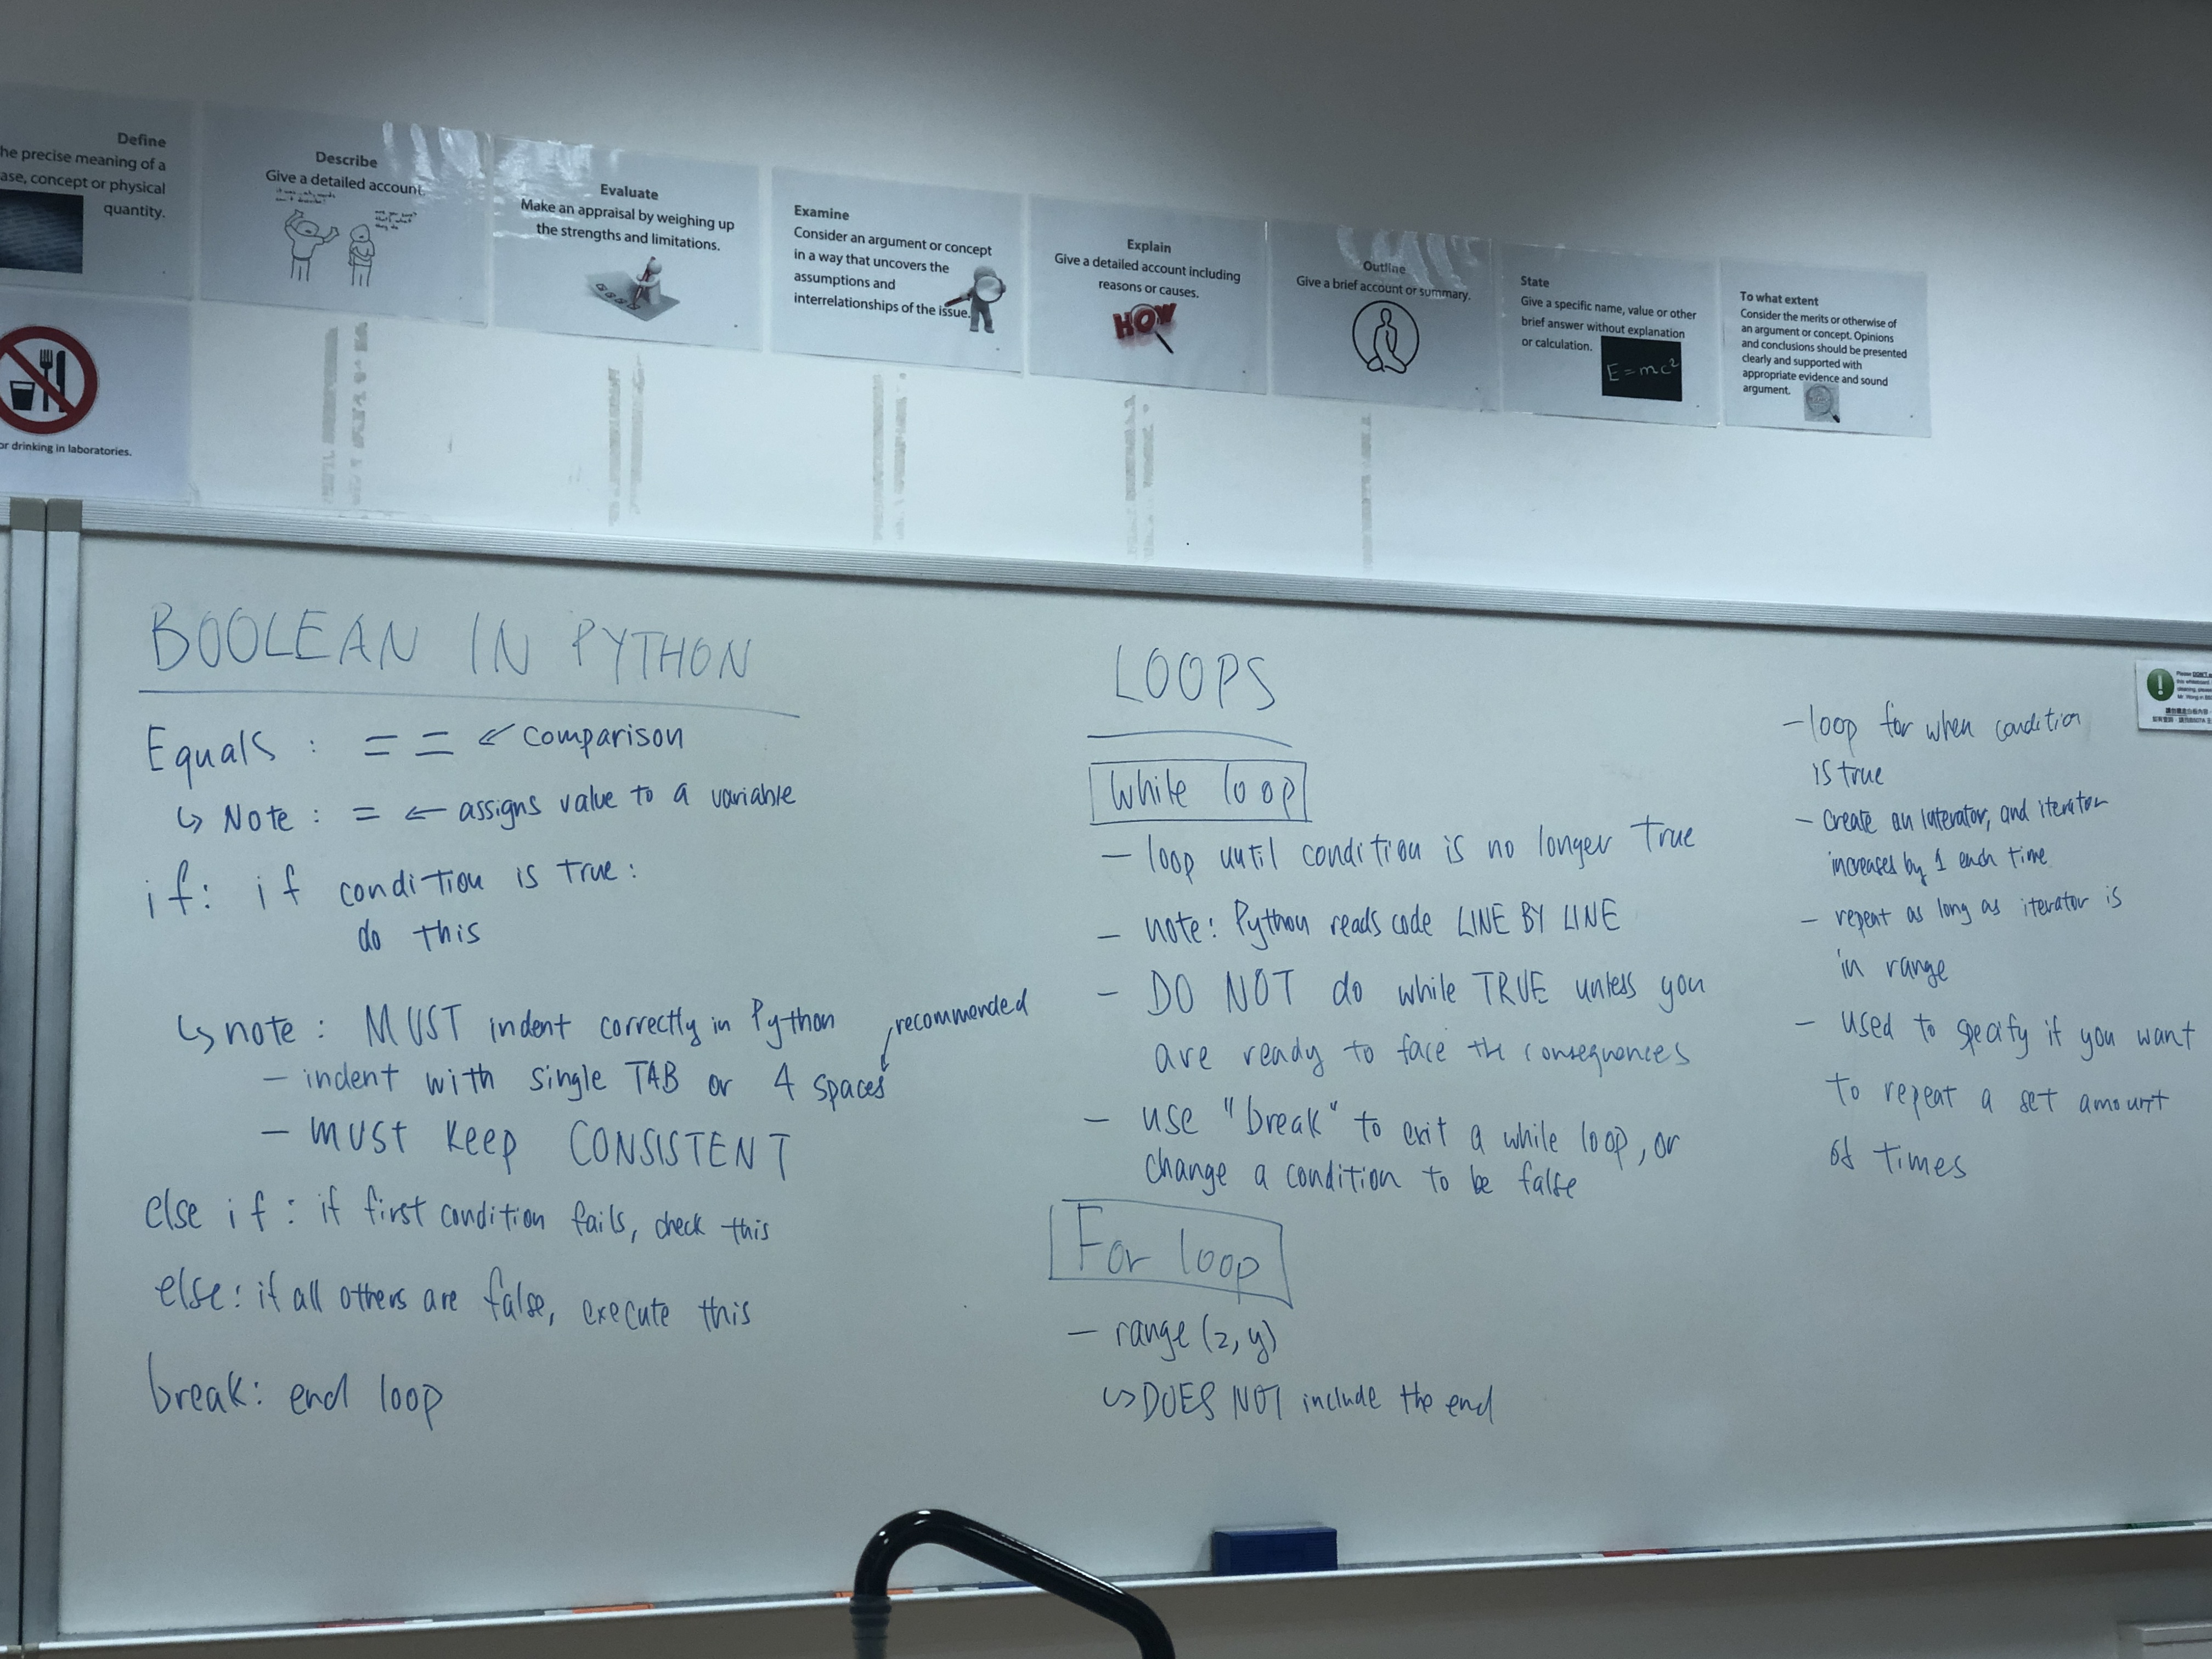 Define
he precise meaning of a
ase, concept or physical
quantity.
Describe
Give a detailed account.
Evaluate
Make an appraisal by weighing up
the strengths and limitations.
Examine
Consider an argument or concept
in a way that uncovers the
assumptions and
interrelationships of the issue.
Explain
Give a detailed account including
reasons or causes.
HOW
Outline
Give a brief account or summary.
State
Give a specific name, value or other
brief answer without explanation
or calculation.
E=mc²
To what extent
Consider the merits or otherwise of
an argument or concept. Opinions
and conclusions should be presented
clearly and supported with
appropriate evidence and sound
argument.
or drinking in laboratories.
BOOLEAN IN PYTHON
Equals : == ← comparison
↳ Note : = ← assigns value to a variable
if: if condition is true:
do this
↳ note : MUST indent correctly in Python
recommended
- indent with single TAB or 4 spaces
- MUST keep CONSISTENT
else if : if first condition fails, check this
else: if all others are false, execute this
break: end loop
LOOPS
While loop
- loop until condition is no longer true
- note: Python reads code LINE BY LINE
- DO NOT do while TRUE unless you
are ready to face the consequences
- use "break" to exit a while loop, or
change a condition to be false
For loop
- range (2, y)
↳ DOES NOT include the end
- loop for when condition
is true
- Create an interator, and iterator
increases by 1 each time
- repeat as long as iterator is
in range
- used to specify if you want
to repeat a set amount
of times
Please DON'T